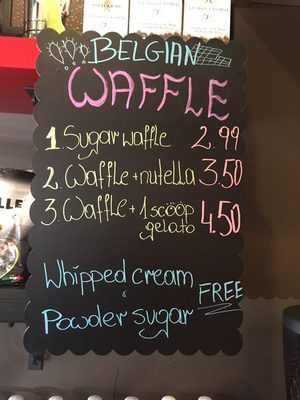 BELGIAN
WAFFLE
1. Sugar waffle 2.99
2. Waffle + nutella 3.50
3. Waffle + 1 scoop gelato 4.50
Whipped cream
&
Powder sugar
FREE